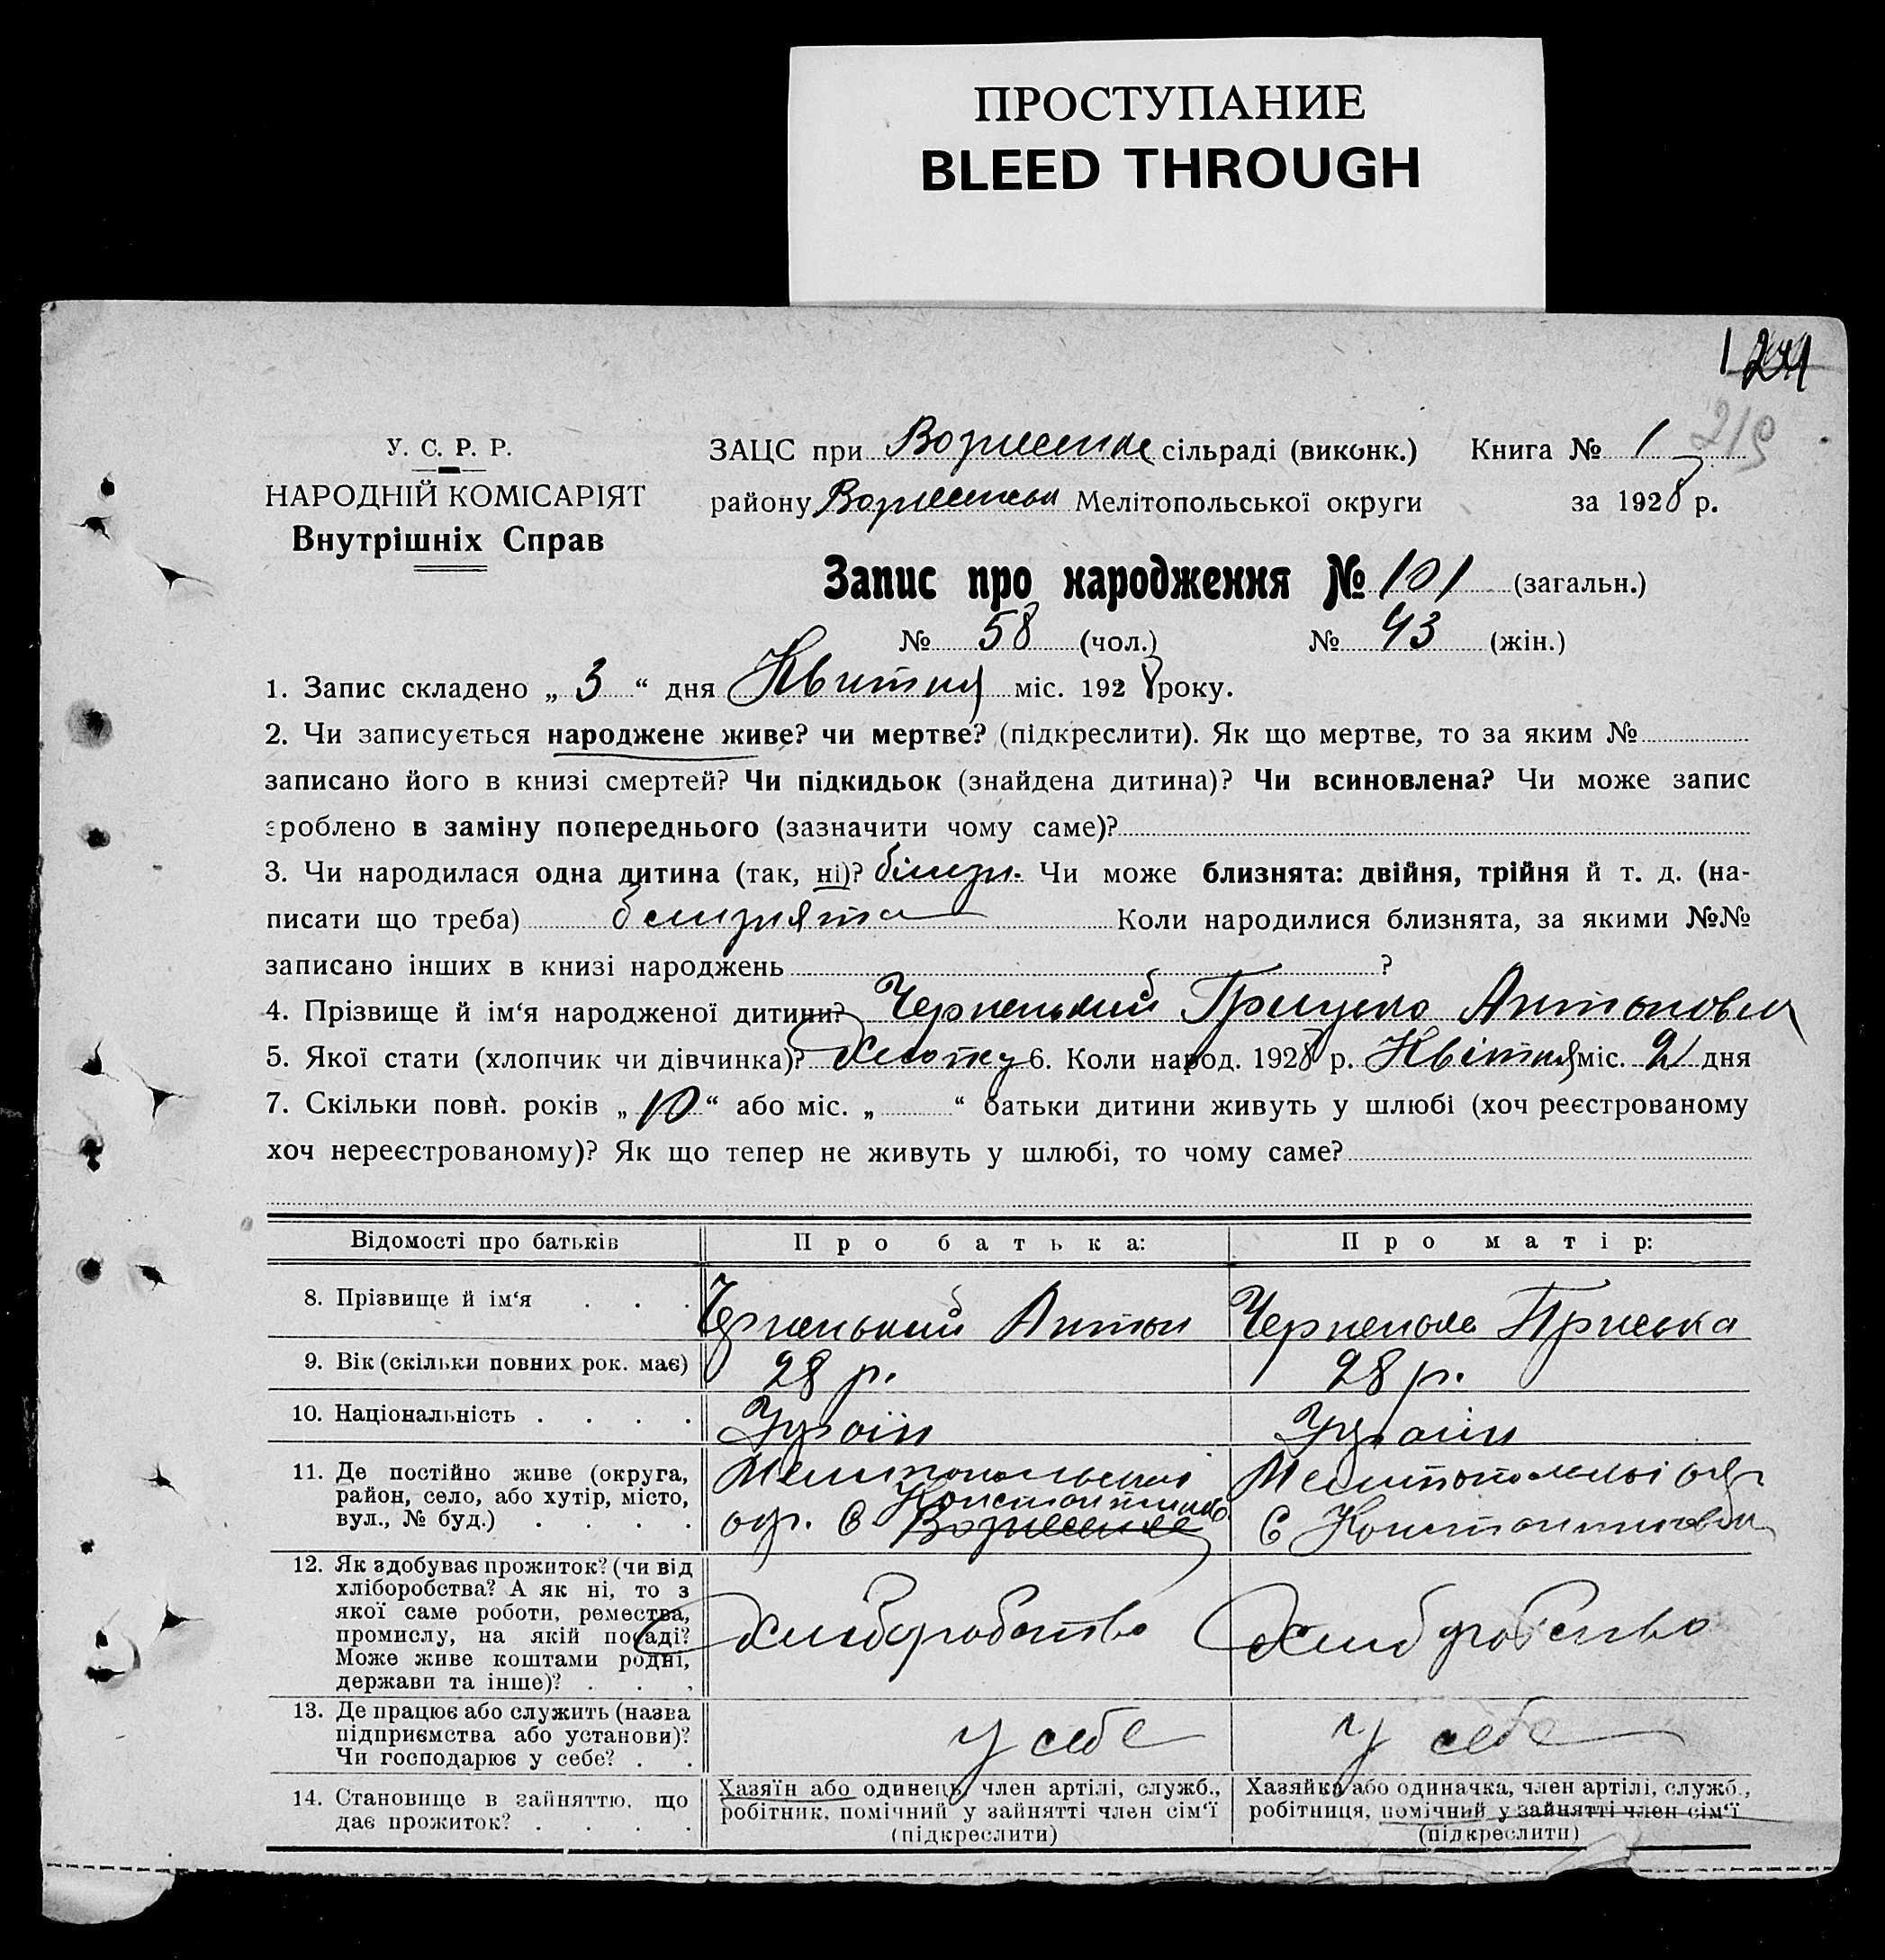 ПРОСТУПАНИЕ
BLEED THROUGH
219
У. С. Р. Р.
НАРОДНІЙ КОМІСАРІЯТ
Внутрішніх Справ
ЗАЦС при сільраді (виконк.) Книга № 1
району Мелітопольської округи за 1928 р.
Запис про народження № 101 (загальн.)
№ 58 (чол.) № 43 (жін.)
1. Запис складено „ 3 “ дня Квитня міс. 1928 року.
2. Чи записується народжене живе? чи мертве? (підкреслити). Як що мертве, то за яким №
записано його в книзі смертей? Чи підкидьок (знайдена дитина)? Чи всиновлена? Чи може запис
зроблено в заміну попереднього (зазначити чому саме)?
3. Чи народилася одна дитина (так, ні)? Чи може близнята: двійня, трійня й т. д. (на-
писати що треба) близнята Коли народилися близнята, за якими №№
записано інших в книзі народжень ?
4. Прізвище й ім‘я народженої дитини? Черненький Грицько Антонович
5. Якої стати (хлопчик чи дівчинка)? 6. Коли народ. 1928 р. Квітня міс. 2 дня
7. Скільки повн. років „ 10 “ або міс. „ “ батьки дитини живуть у шлюбі (хоч реєстрованому
хоч нереєстрованому)? Як що тепер не живуть у шлюбі, то чому саме?
Відомості про батьків Про батька: Про матір:
8. Прізвище й ім‘я . . . Черненький Антон Приська
9. Вік (скільки повних рок. має) 28 р. 28 р.
10. Національність . . . . Украін Украін
11. Де постійно живе (округа, район, село, або хутір, місто, вул., № буд.) . . . .
Мелитопольскоі
окр. с Вознесенка
Мелитопольскоі окр
с Константиновки
12. Як здобуває прожиток? (чи від хліборобства? А як ні, то з якої саме роботи, ремества, промислу, на якій посаді? Може живе коштами родні, держави та інше)? . . . Хлиборобство Хлиборобство
13. Де працює або служить (назва підприємства або установи)? Чи господарює у себе? . . у себе у себе
14. Становище в зайняттю, що дає прожиток? . . . .
Хазяїн або одинець, член артілі, служб., робітник, помічний у зайнятті член сім‘ї (підкреслити)
Хазяйка або одиначка, член артілі, служб., робітниця, помічний у зайнятті член сім‘ї (підкреслити)